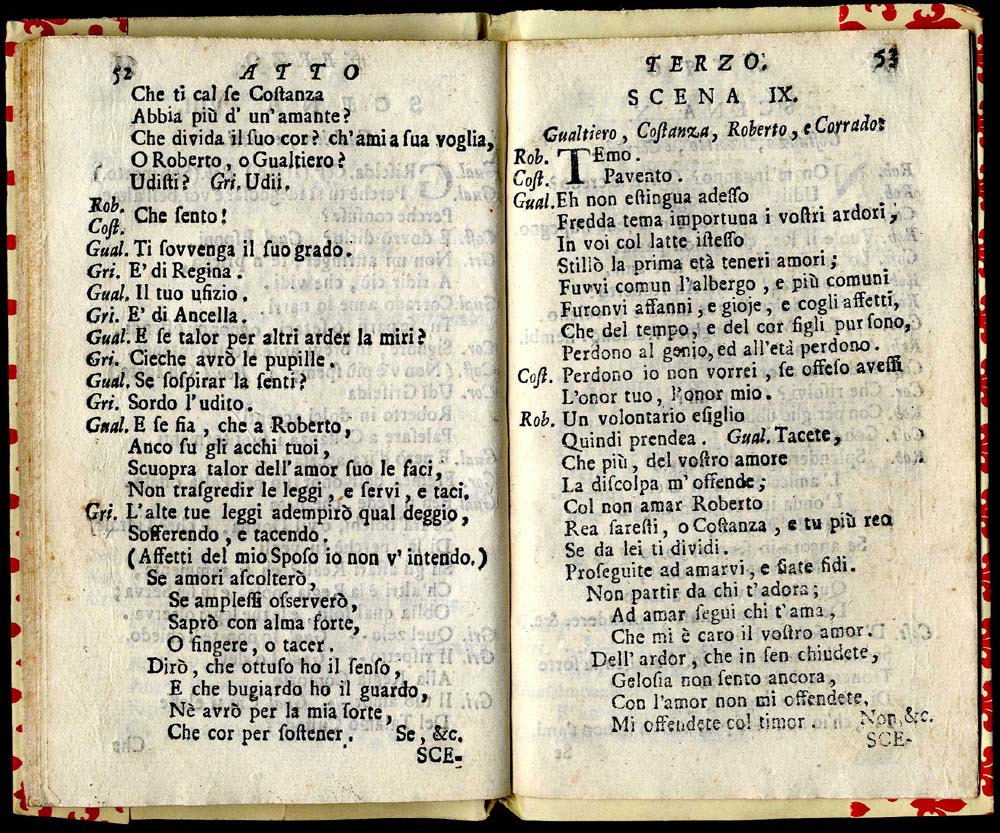 52 ATTO
Che ti cal ſe Coſtanza
Abbia più d' un'amante?
Che divida il ſuo cor? ch'ami a ſua voglia,
O Roberto, o Gualtiero?
Udiſti? Gri. Udii.
Rob.
Coſt. Che ſento!
Gual. Ti ſovvenga il ſuo grado.
Gri. E' di Regina.
Gual. Il tuo ufizio.
Gri. E' di Ancella.
Gual. E ſe talor per altri arder la miri?
Gri. Cieche avrò le pupille.
Gual. Se ſoſpirar la ſenti?
Gri. Sordo l'udito.
Gual. E ſe fia, che a Roberto,
Anco ſu gli acchi tuoi,
Scuopra talor dell'amor ſuo le faci,
Non traſgredir le leggi, e ſervi, e taci.
Gri. L'alte tue leggi adempirò qual deggio,
Sofferendo, e tacendo.
(Affetti del mio Spoſo io non v' intendo.)
Se amori aſcolterò,
Se ampleſſi oſſerverò,
Saprò con alma forte,
O fingere, o tacer.
Dirò, che ottuſo ho il ſenſo,
E che bugiardo ho il guardo,
Nè avrò per la mia ſorte,
Che cor per ſoſtener. Se, &c.
SCE-
TERZO. 53
SCENA IX.
Gualtiero, Coſtanza, Roberto, e Corrado.
Rob. TEmo.
Coſt. Pavento.
Gual. Eh non eſtingua adeſſo
Fredda tema importuna i voſtri ardori,
In voi col latte iſteſſo
Stillò la prima età teneri amori;
Fuvvi comun l'albergo, e più comuni
Furonvi affanni, e gioje, e cogli affetti,
Che del tempo, e del cor figli pur ſono,
Perdono al genio, ed all'età perdono.
Coſt. Perdono io non vorrei, ſe offeſo aveſſi
L'onor tuo, l'onor mio.
Rob. Un volontario eſiglio
Quindi prendea. Gual. Tacete,
Che più, del voſtro amore
La diſcolpa m'offende;
Col non amar Roberto
Rea ſareſti, o Coſtanza, e tu più rea
Se da lei ti dividi.
Proſeguite ad amarvi, e ſiate fidi.
Non partir da chi t'adora;
Ad amar ſegui chi t'ama,
Che mi è caro il voſtro amor.
Dell' ardor, che in ſen chiudete,
Geloſia non ſento ancora,
Con l'amor non mi offendete,
Mi offendete col timor. Non, &c.
SCE-